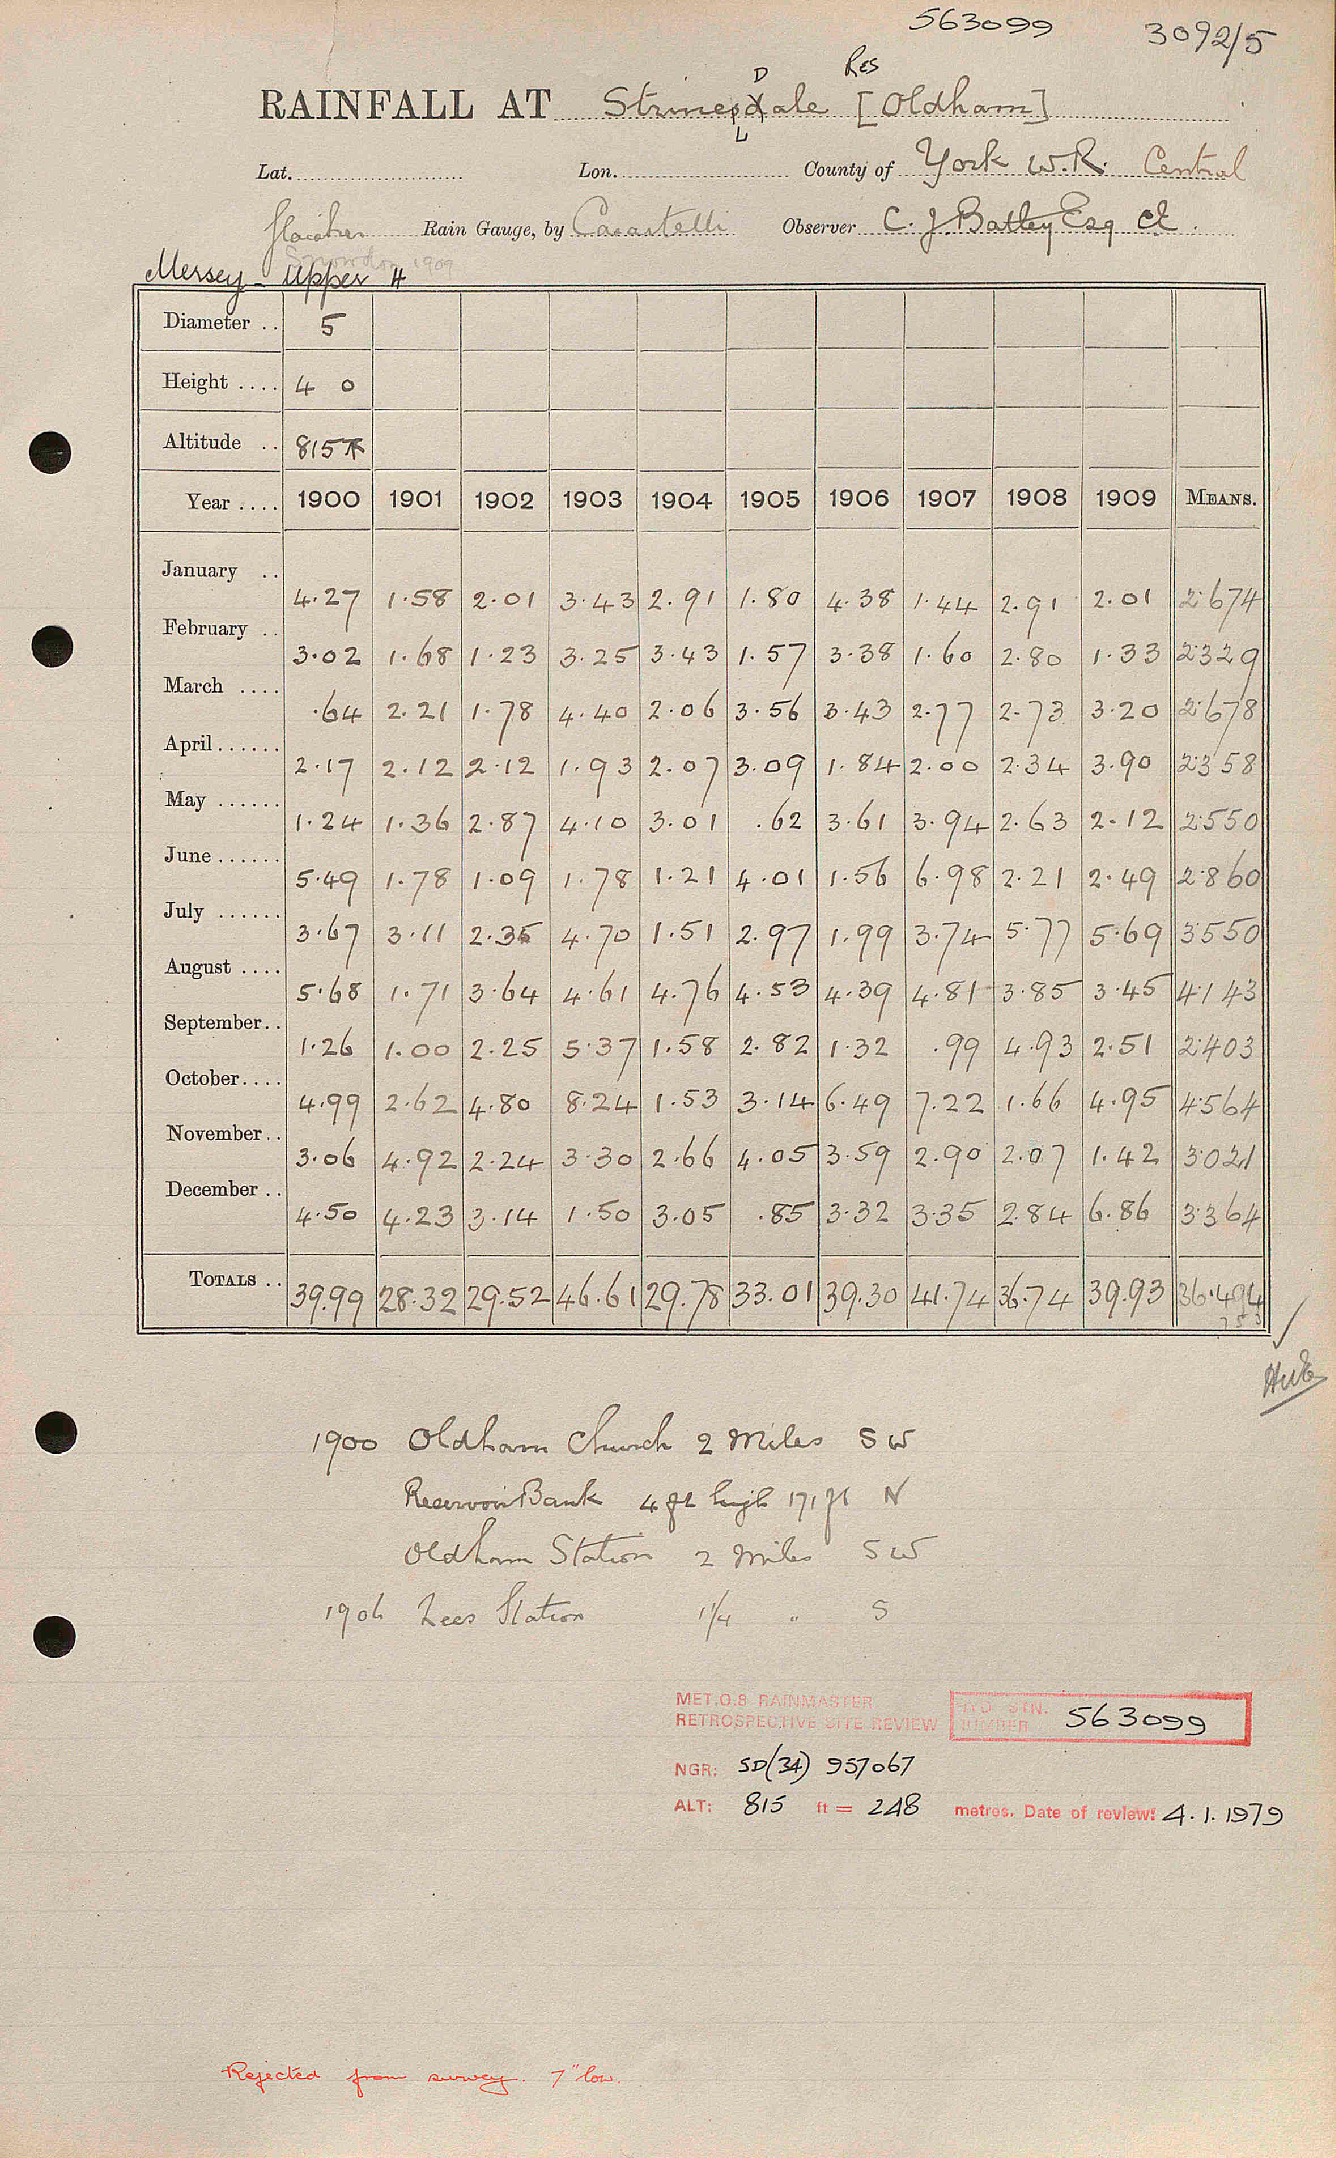 563099 3092/5
D Res
RAINFALL AT Strinesdale [Oldham]
L
Lat. Lon. County of York W.R. Central
Rain Gauge, by Casartelli Observer C. J. Batley Esq CE
Snowdon 1909
Mersey - Upper 4
Diameter .. 5
Height .... 4 0
Altitude .. 815
Year .... 1900 1901 1902 1903 1904 1905 1906 1907 1908 1909 MEANS.
January .. 4.27 1.58 2.01 3.43 2.91 1.80 4.38 1.44 2.91 2.01 2.674
February .. 3.02 1.68 1.23 3.25 3.43 1.57 3.38 1.60 2.80 1.33 2.329
March .... .64 2.21 1.78 4.40 2.06 3.56 3.43 2.77 2.73 3.20 2.678
April ...... 2.17 2.12 2.12 1.93 2.07 3.09 1.84 2.00 2.34 3.90 2.358
May ...... 1.24 1.36 2.87 4.10 3.01 .62 3.61 3.94 2.63 2.12 2.550
June ...... 5.49 1.78 1.09 1.78 1.21 4.01 1.56 6.98 2.21 2.49 2.860
July ...... 3.67 3.11 2.35 4.70 1.51 2.97 1.99 3.74 5.77 5.69 3.550
August .... 5.68 1.71 3.64 4.61 4.76 4.53 4.39 4.81 3.85 3.45 4.143
September .. 1.26 1.00 2.25 5.37 1.58 2.82 1.32 .99 4.93 2.51 2.403
October .... 4.99 2.62 4.80 8.24 1.53 3.14 6.49 7.22 1.66 4.95 4.564
November .. 3.06 4.92 2.24 3.30 2.66 4.05 3.59 2.90 2.07 1.42 3.021
December .. 4.50 4.23 3.14 1.50 3.05 .85 3.32 3.35 2.84 6.86 3.364
TOTALS .. 39.99 28.32 29.52 46.61 29.78 33.01 39.30 41.74 36.74 39.93 36.494
1900 Oldham Church 2 Miles SW
Reservoir Bank 4 ft high 171 ft N
Oldham Station 2 Miles SW
1906 Lees Station 1¼ " S
MET.O.8 RAINMASTER
RETROSPECTIVE SITE REVIEW HYD STN. NUMBER 563099
NGR: SD(34) 957067
ALT: 815 ft = 248 metres. Date of review: 4.1.1979
Rejected from survey. 7" low.